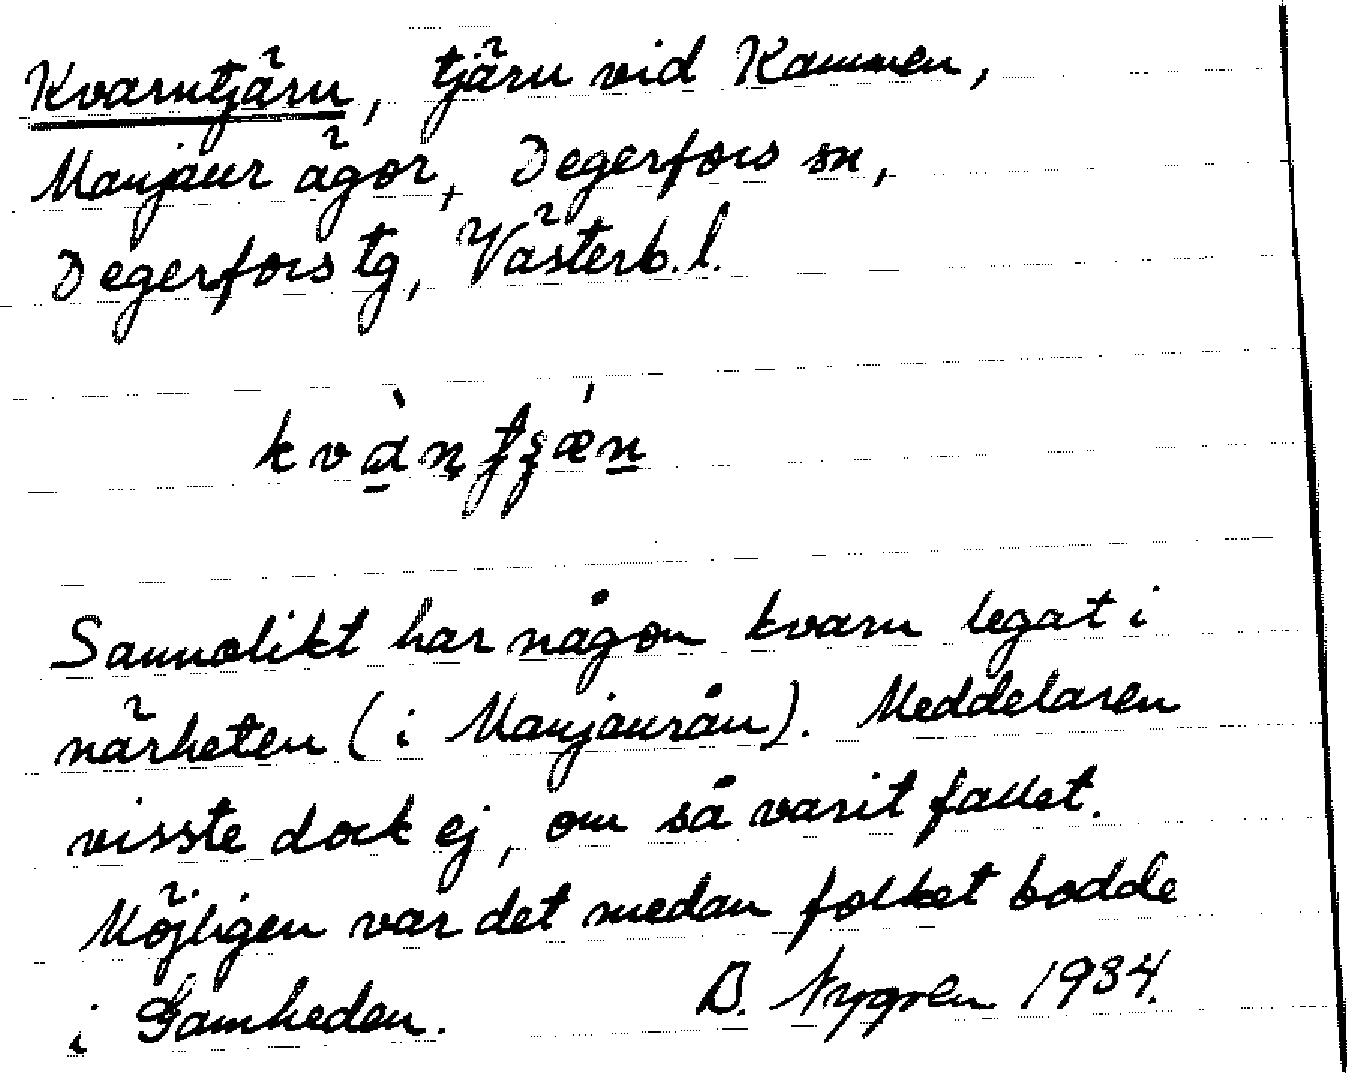 Kvarntjärn, tjärn vid Kammen,
Manjaur ägor, Degerfors sn,
Degerfors tg, Västerb. l.
Sannolikt har någon kvarn legat i
närheten (i Manjaurån). Meddelaren
visste dock ej, om så varit fallet.
Möjligen var det medan folket bodde
i Gamheden. B. Nygren 1934.